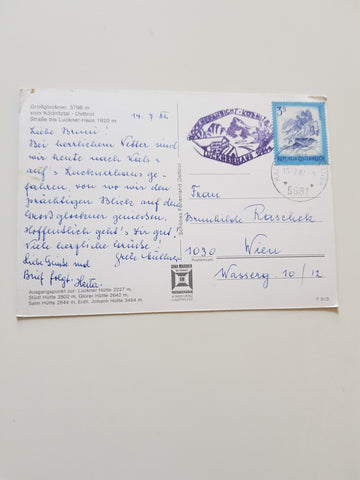 Großglockner, 3798 m
vom Ködnitztal - Osttirol
Straße bis Luckner-Haus 1920 m
14. 7. 82
Liebe Bruni!
Bei herrlichem Wetter sind
wir heute nach Kals -
auf's Lucknerhaus ge-
fahren, von wo wir den
prächtigen Blick auf den
Großglockner genießen.
Hoffentlich geht's Dir gut!
Viele herzliche Grüße!
Liebe Grüße und
Brief folgt. Herta.
Ausgangspunkt zur: Luckner Hütte 2227 m,
Stüdl Hütte 2802 m, Glorer Hütte 2642 m,
Salm Hütte 2644 m, Erzh. Johann Hütte 3454 m.
LUCKNERHAUS
3 S
REPUBLIK ÖSTERREICH
9981
Frau
Brunhilde Raschek
1090 Wien
Wasserg. 10/12
Postleitzahl